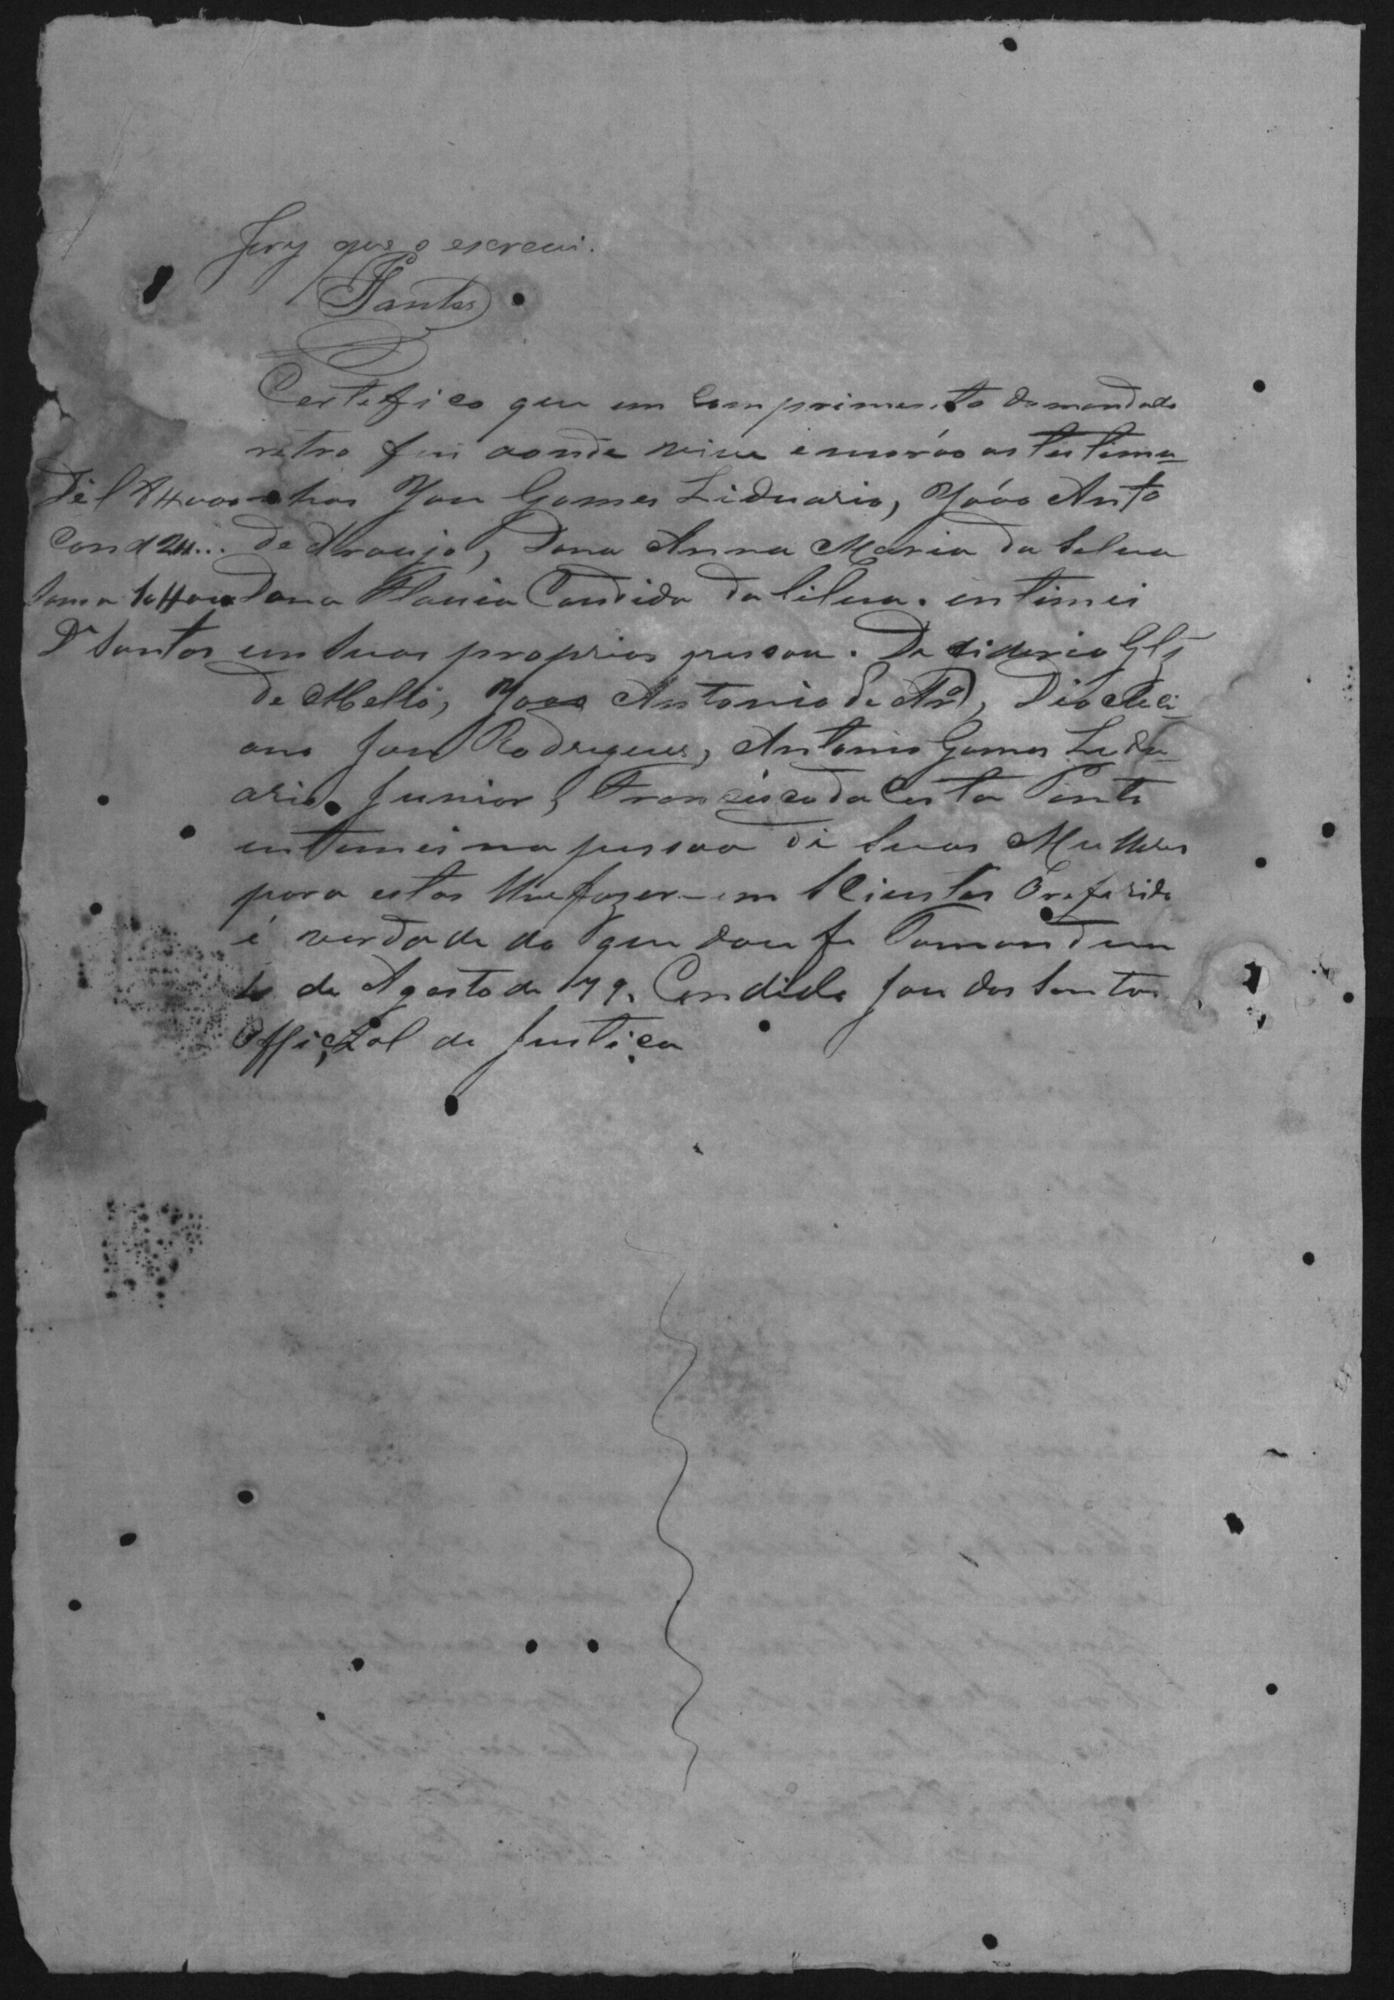 Jury que o escrevi.
Santos
Certefico que em Comprimento do mandado
retro fui aonde vive e morão as testemu=
nhas Jose Gomes Liduario, João Anto
de Araujo, Dona Anna Maria da Selva
Dona Flavia Candida da Silva. intimei
em suas proprias pessoa. Desiderio Glz
de Mello, João Antonio de Aro, Diocleci
ano Jose Rodrigues, Antonio Gomes Lidu=
ario Junior, Francisco da Costa
intimei na pessoa di suas Mulheres
para estas lhe fazer-em Scientes O referido
é verdade do que dou fé
de Agosto de 79. Candido Jose dos Santos
Official de Justiça
Cond 24...
Soma
Dr Santos